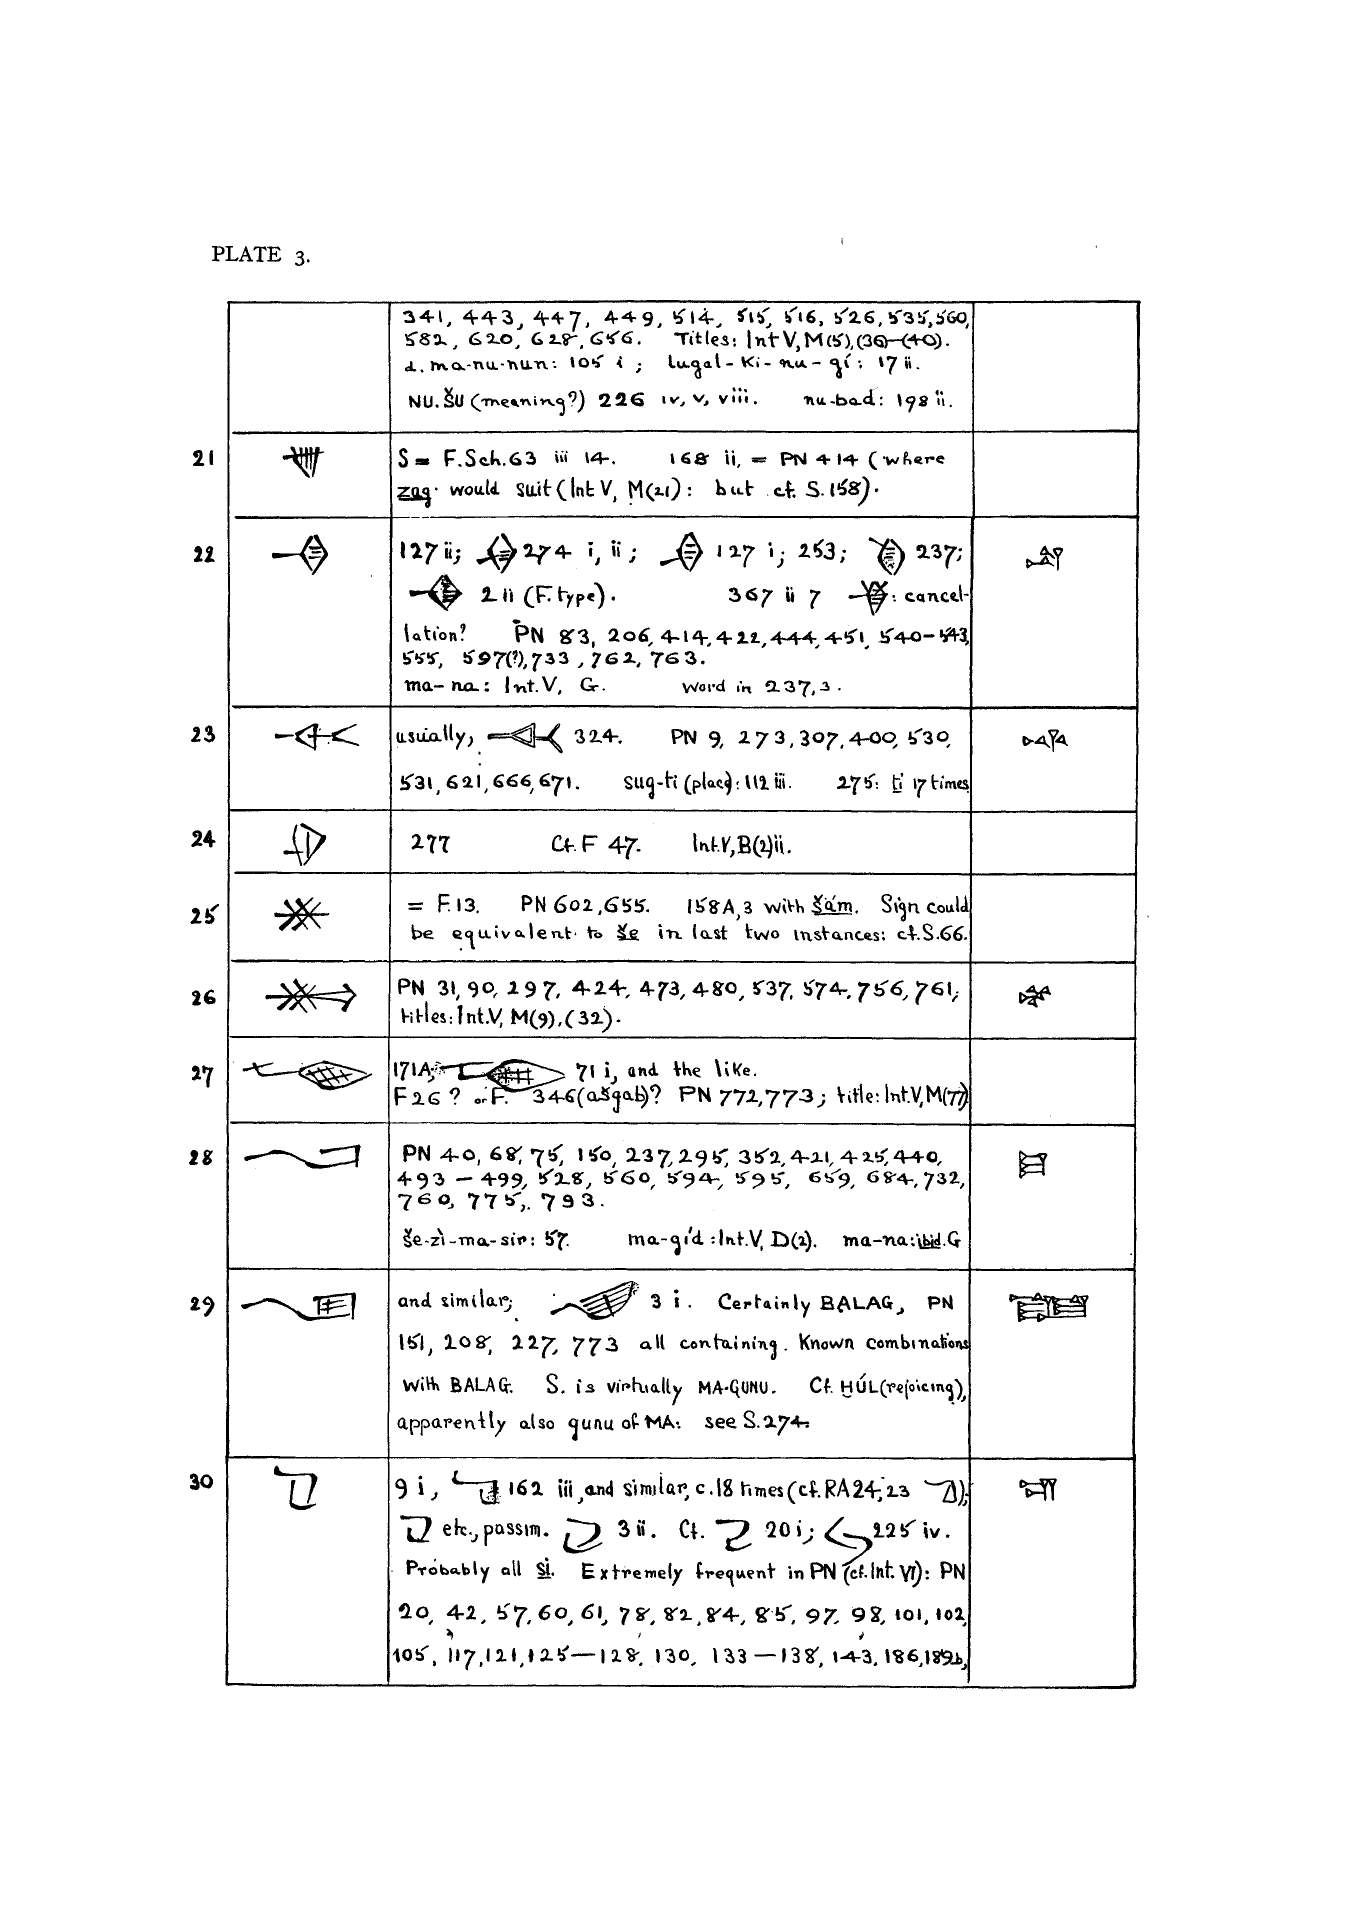 PLATE 3.
341, 443, 447, 449, 514, 515, 516, 526, 535, 560,
582, 620, 628, 656. Titles: Int V, M(5), (36)–(40).
d. ma-nu-nun: 105 i; lugal-ki-nu-gí: 17 ii.
NU. ŠU (meaning?) 226 iv, v, viii. nu-bad: 198 ii.
21 S = F. Sch. 63 iii 14. 168 ii, = PN 414 (where
zag would suit (Int V, M(21): but cf. S. 158).
22 127 ii; 274 i, ii; 127 i; 253; 237;
2 ii (F. type). 367 ii 7 : cancel-
lation? PN 83, 206, 414, 422, 444, 451, 540–543,
555, 597(?), 733, 762, 763.
ma-na: Int. V, G. word in 237, 3.
23 usually, 324. PN 9, 273, 307, 400, 530,
531, 621, 666, 671. sug-ti (place): 112 iii. 275: ti 17 times
24 277 Cf. F 47. Int. V, B(2) ii.
25 = F. 13. PN 602, 655. 158A, 3 with šám. Sign could
be equivalent to še in last two instances: cf. S. 66.
26 PN 31, 90, 297, 424, 473, 480, 537, 574, 756, 761;
titles: Int. V, M(9), (32).
27 171A; 71 i, and the like.
F 26? or F. 346 (ašgab)? PN 772, 773; title: Int. V, M(77)
28 PN 40, 68, 75, 150, 237, 295, 352, 421, 425, 440,
493–499, 528, 560, 594, 595, 659, 684, 732,
760, 775, 793.
še-zì-ma-sir: 57. ma-gíd: Int. V, D(2). ma-na: ibid. G
29 and similar; 3 i. Certainly BALAG, PN
151, 208, 227, 773 all containing. Known combinations
with BALAG. S. is virtually MA-GUNU. Cf. HÚL (rejoicing),
apparently also gunu of MA: see S. 274.
30 9 i, 162 iii, and similar, c. 18 times (cf. RA 24, 23 );
etc., passim. 3 ii. Cf. 20 i; 225 iv.
Probably all si. Extremely frequent in PN (cf. Int. VI): PN
20, 42, 57, 60, 61, 78, 82, 84, 85, 97, 98, 101, 102,
105, 117, 121, 125–128, 130, 133–138, 143, 186, 189b,